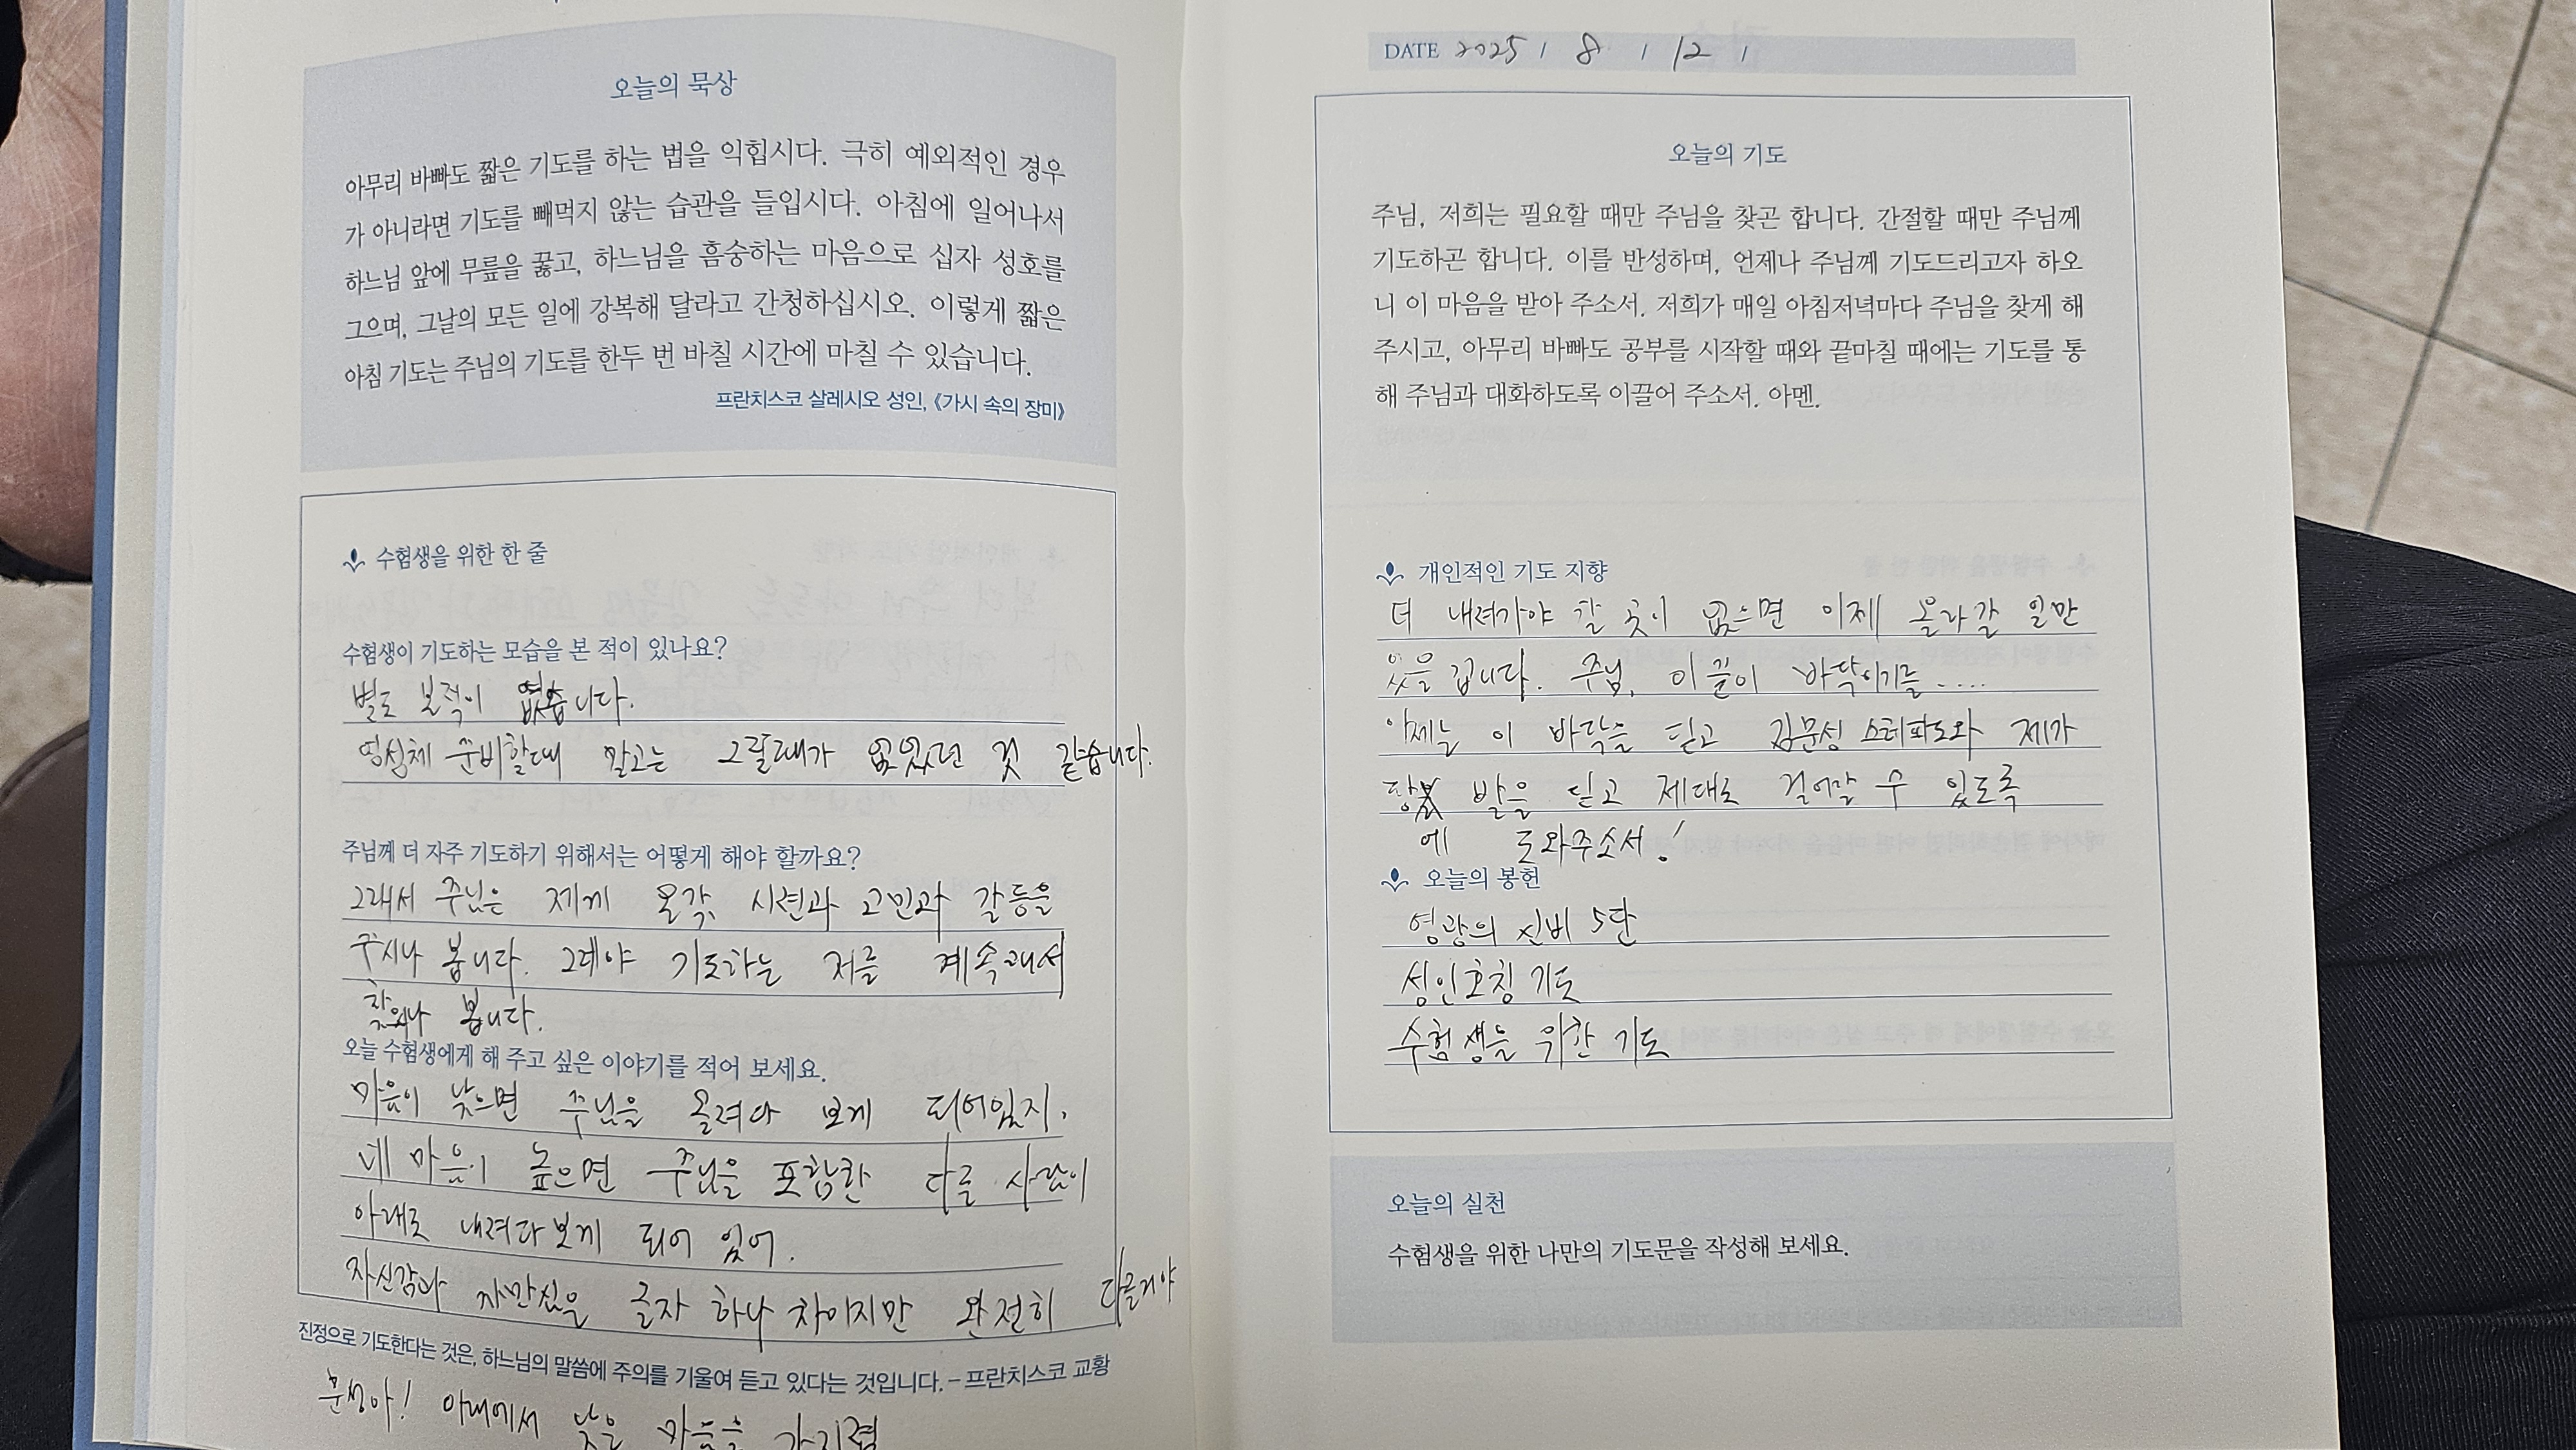 오늘의 묵상
아무리 바빠도 짧은 기도를 하는 법을 익힙시다. 극히 예외적인 경우
가 아니라면 기도를 빼먹지 않는 습관을 들입시다. 아침에 일어나서
하느님 앞에 무릎을 꿇고, 하느님을 흠숭하는 마음으로 십자 성호를
그으며, 그날의 모든 일에 강복해 달라고 간청하십시오. 이렇게 짧은
아침 기도는 주님의 기도를 한두 번 바칠 시간에 마칠 수 있습니다.
프란치스코 살레시오 성인, 《가시 속의 장미》
수험생을 위한 한 줄
수험생이 기도하는 모습을 본 적이 있나요?
별로 본적이 없습니다.
영성체 준비할때 말고는 그럴때가 없었던 것 같습니다.
주님께 더 자주 기도하기 위해서는 어떻게 해야 할까요?
그래서 주님은 제게 몰각, 시련과 고민과 갈등을
주시나 봅니다. 그레야 기도하는 저를 계속해서
봅니다.
오늘 수험생에게 해 주고 싶은 이야기를 적어 보세요.
마음이 낮으면 주님을 올려다 보게 되어있지.
네 마음이 높으면 주님을 포함한 다른 사람이
아래로 내려다보게 되어 있어.
자신감과 자만심은 글자 하나 차이지만 완전히 다른거야
진정으로 기도한다는 것은, 하느님의 말씀에 주의를 기울여 듣고 있다는 것입니다. – 프란치스코 교황
문성아! 아래에서 낮은 마음을 가지렴
DATE 2025 / 8 / 12 /
오늘의 기도
주님, 저희는 필요할 때만 주님을 찾곤 합니다. 간절할 때만 주님께
기도하곤 합니다. 이를 반성하며, 언제나 주님께 기도드리고자 하오
니 이 마음을 받아 주소서. 저희가 매일 아침저녁마다 주님을 찾게 해
주시고, 아무리 바빠도 공부를 시작할 때와 끝마칠 때에는 기도를 통
해 주님과 대화하도록 이끌어 주소서. 아멘.
개인적인 기도 지향
더 내려가야 할 곳이 없으면 이제 올라갈 일만
있을 겁니다. 주님, 이 끝이 바닥이기를 ....
이제는 이 바닥을 딛고 김문성 스테파노와 제가
땅에 발을 딛고 제대로 걸어갈 수 있도록
도와주소서!
오늘의 봉헌
영광의 신비 5단
성인호칭 기도
수험생을 위한 기도
오늘의 실천
수험생을 위한 나만의 기도문을 작성해 보세요.